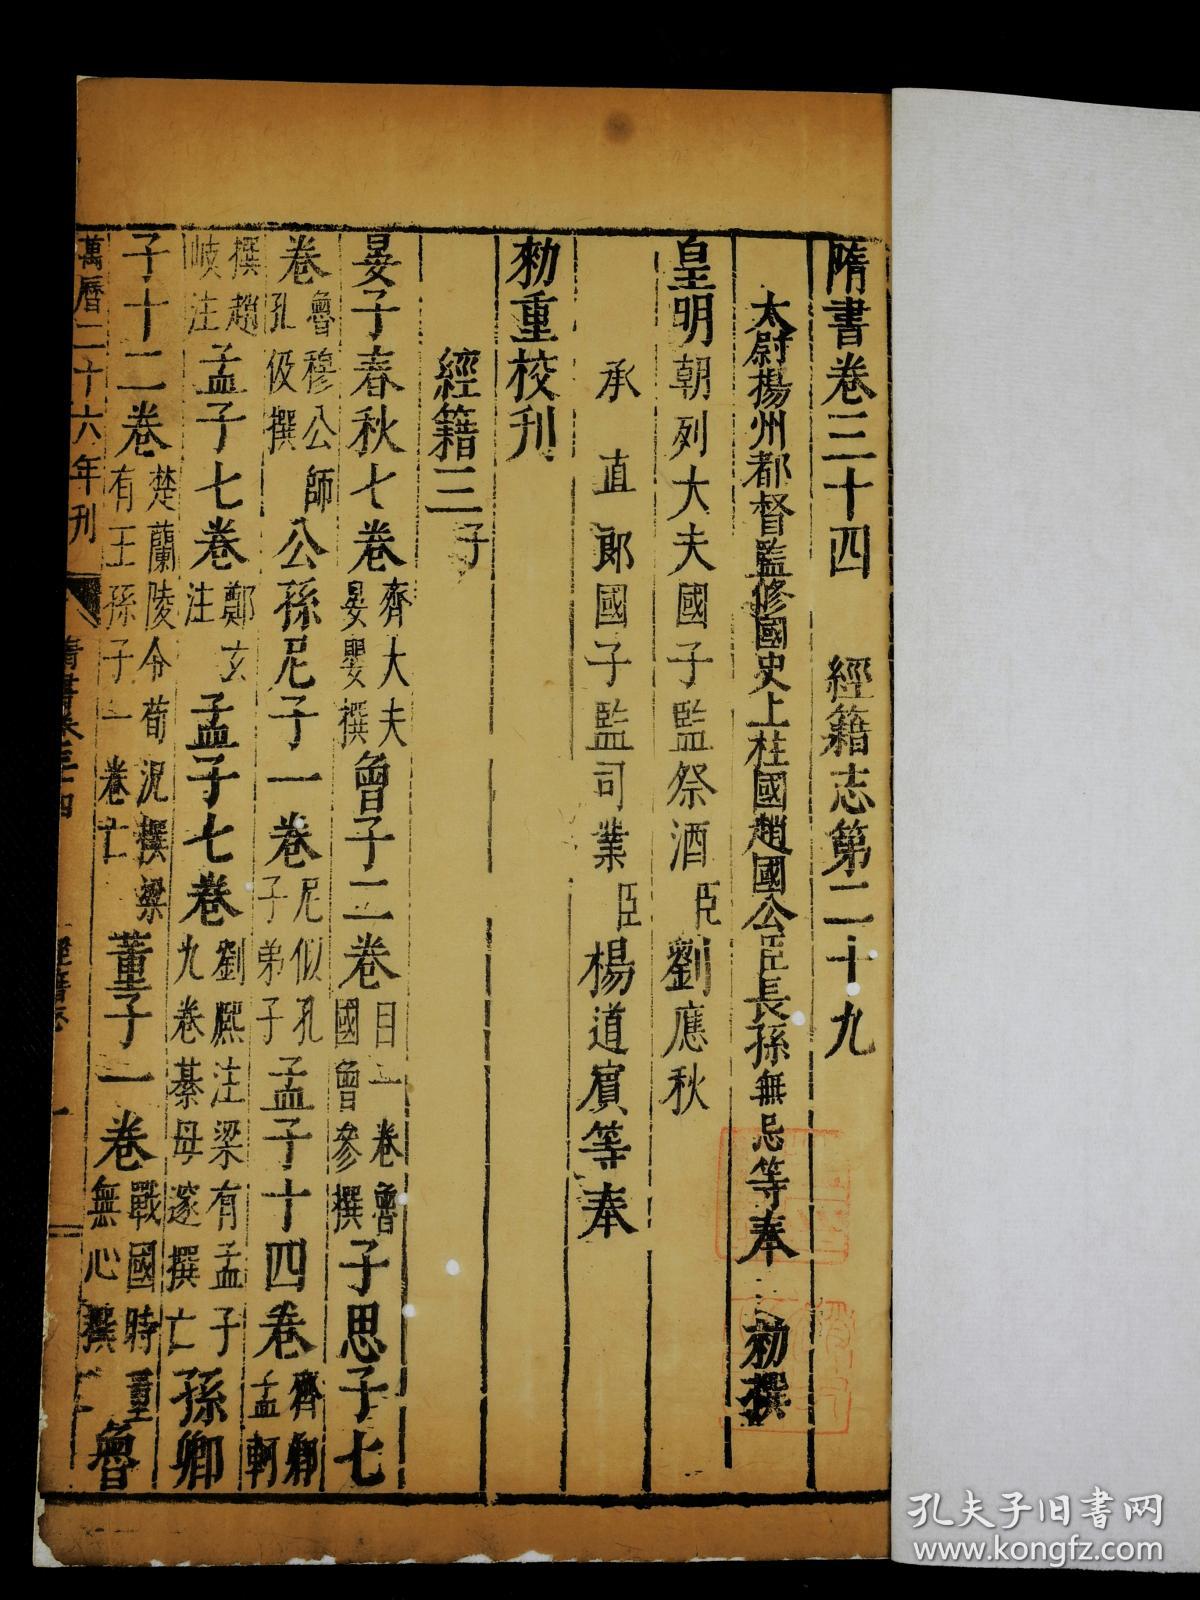 隋書卷三十四 經籍志第二十九
太尉揚州都督監修國史上柱國趙國公臣長孫無忌等奉 勑撰
皇明朝列大夫國子監祭酒臣劉應秋
承直郎國子監司業臣楊道賓等奉
勑重校刋
經籍三子
晏子春秋七卷齊大夫晏嬰撰曾子二卷目一卷魯國曾參撰子思子七
卷魯穆公師孔伋撰公孫尼子一卷尼似孔子弟子孟子十四卷齊卿孟軻
撰趙岐注孟子七卷鄭玄注孟子七卷劉熙注梁有孟子九卷綦毋邃撰亡孫卿
子十二卷楚蘭陵令荀況撰梁有王孫子一卷亡董子一卷戰國時董無心撰魯
萬曆二十六年刋
隋書卷三十四
經籍志
一
孔夫子旧书网
www.kongfz.com